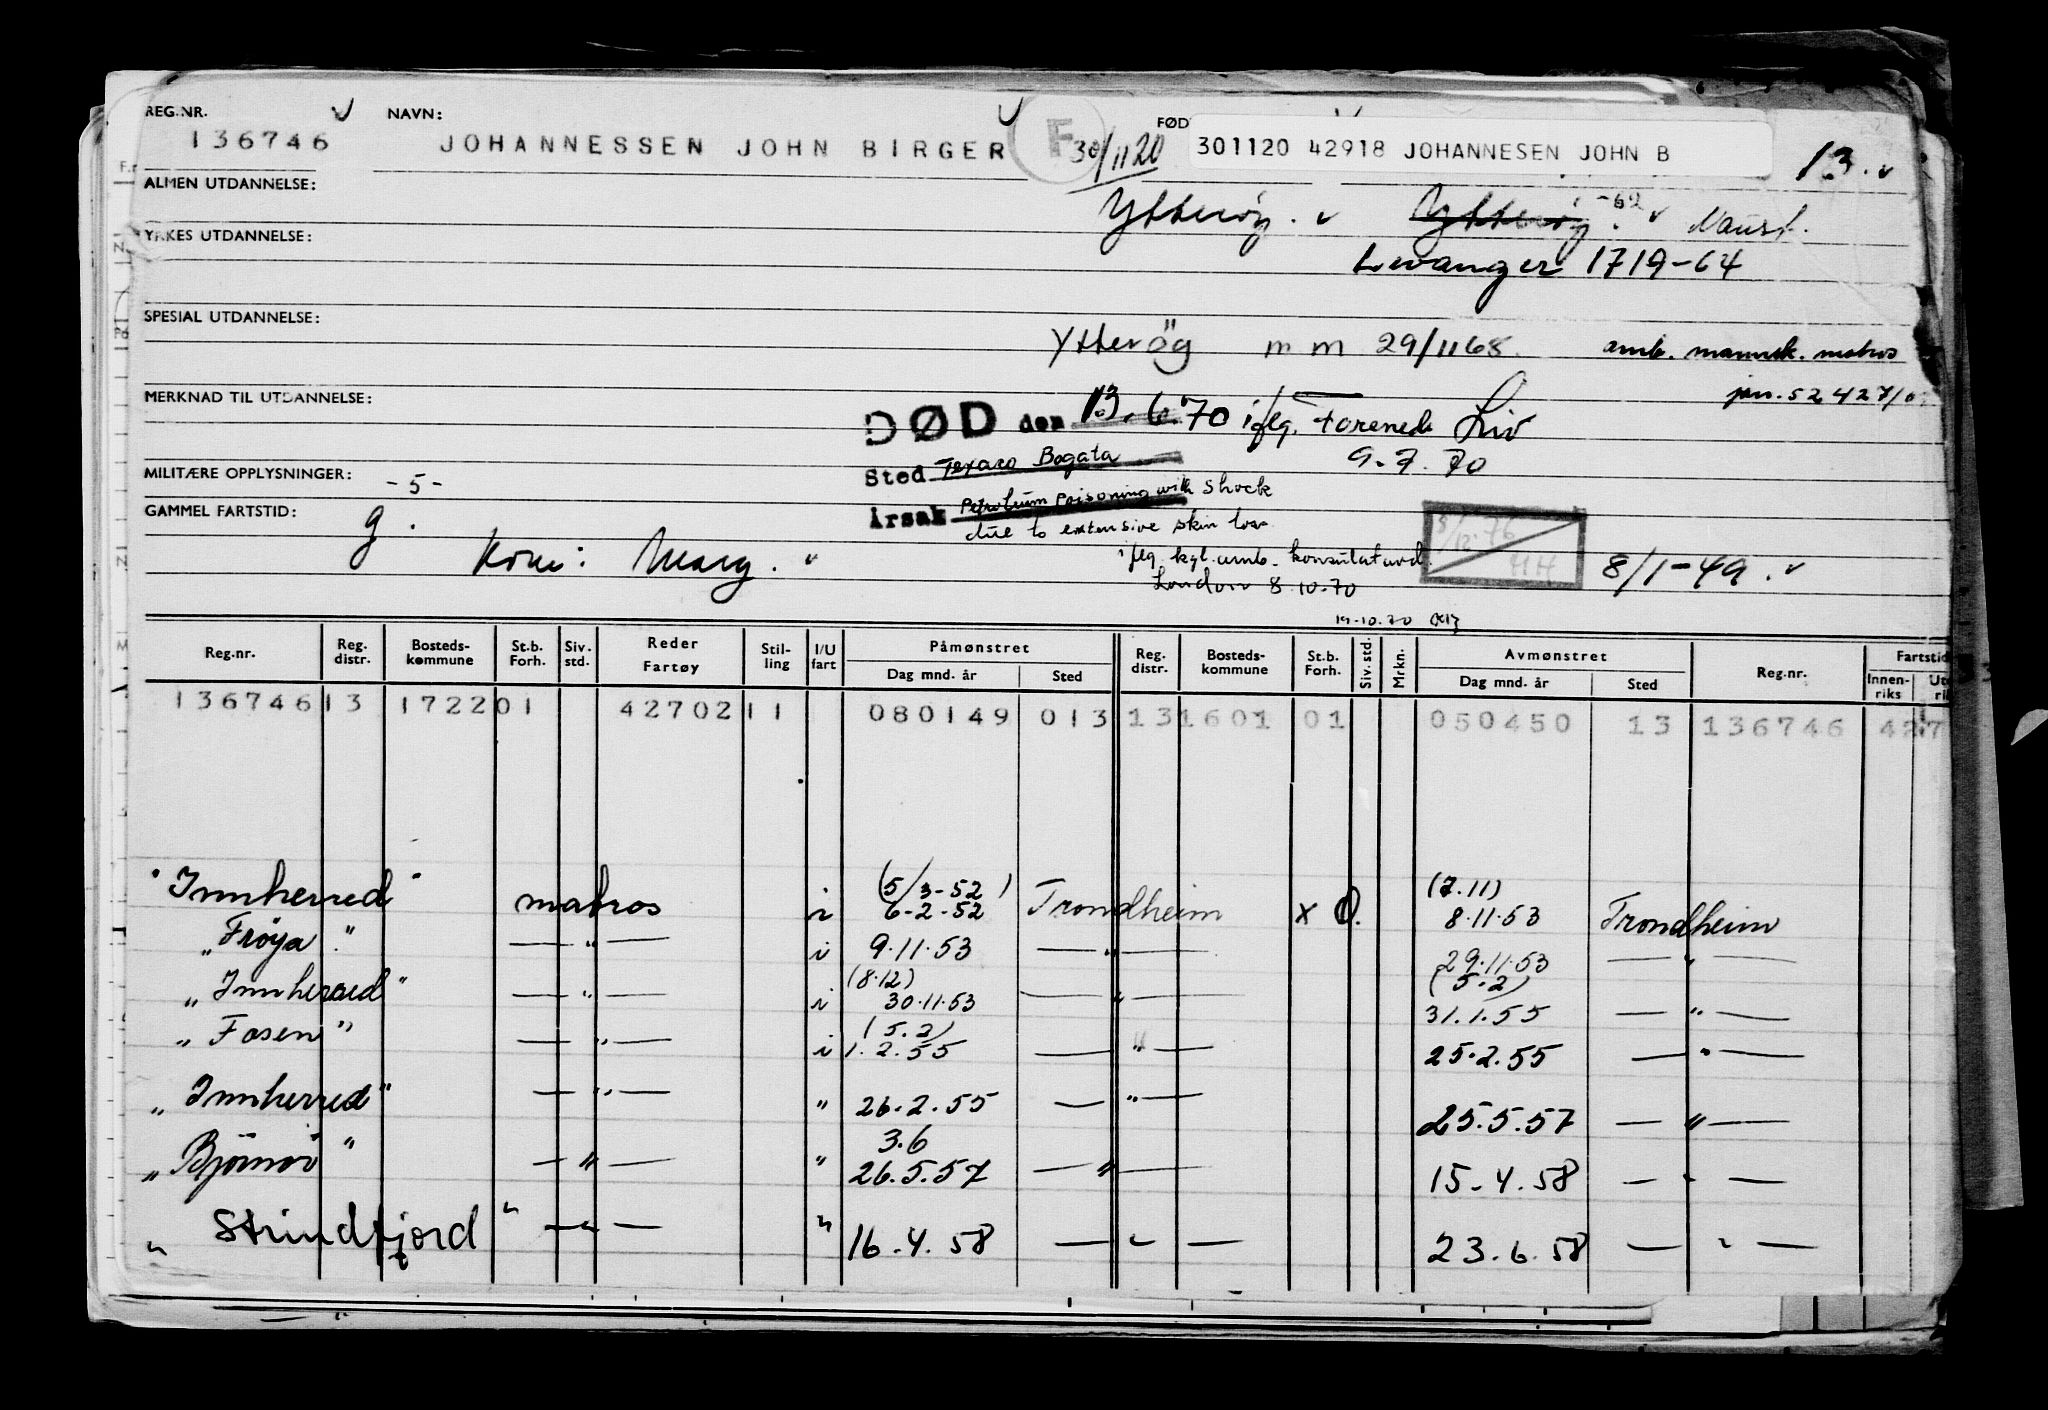 REG.NR. NAVN: FØD
136746 JOHANNESSEN JOHN BIRGER F 30/11 20 301120 42918 JOHANNESEN JOHN B 13.
ALMEN UTDANNELSE:
Ytterøy. Ytterøy. -62
YRKES UTDANNELSE:
Levanger 1719-64
SPESIAL UTDANNELSE:
Ytterøy m m 29/11 68 amb. mannsk. matros
MERKNAD TIL UTDANNELSE:
jan. 52 427/
DØD den 13.6.70 iflg. Forenede Liv
9.7.70
MILITÆRE OPPLYSNINGER: -5-
Sted Texaco Bogata
GAMMEL FARTSTID: g.
Årsak Petroleum poisoning with shock
due to extensive skin loss
Kone: Marg.
iflg. kgl. amb. konsulatavd.
London 8.10.70
12.76 HH
8/1-49.
19.10.70
Reg.nr. Reg. distr. Bosteds- kommune St.b. Forh. Siv. std. Reder Fartøy Stil- ling I/U fart Påmønstret Dag mnd. år Sted Reg. distr. Bosteds- kommune St.b. Forh. Siv. std. Mrkn. Avmønstret Dag mnd. år Sted Reg.nr. Fartstid Innen- riks
136746 13 1722 01 42702 11 080149 013 13 1601 01 050450 13 136746 42 7
"Innherred" matros i (5/3-52) 6-2-52 Trondheim x (7.11) 8.11.53 Trondheim
"Frøya" — " — i 9.11.53 — " — 29.11.53 — " —
"Innherred" — " — i (8.12) 30.11.53 — " — (5.2) 31.1.55 — " —
"Fosen" — " — i (5.2) 1.2.55 — " — 25.2.55 — " —
"Innherred" — " — " 26.2.55 — " — 25.5.57 — " —
"Björnör" — " — " 3.6 26.5.57 — " — 15.4.58 — " —
"Strindfjord" — " — " 16.4.58 — " — 23.6.58 — " —